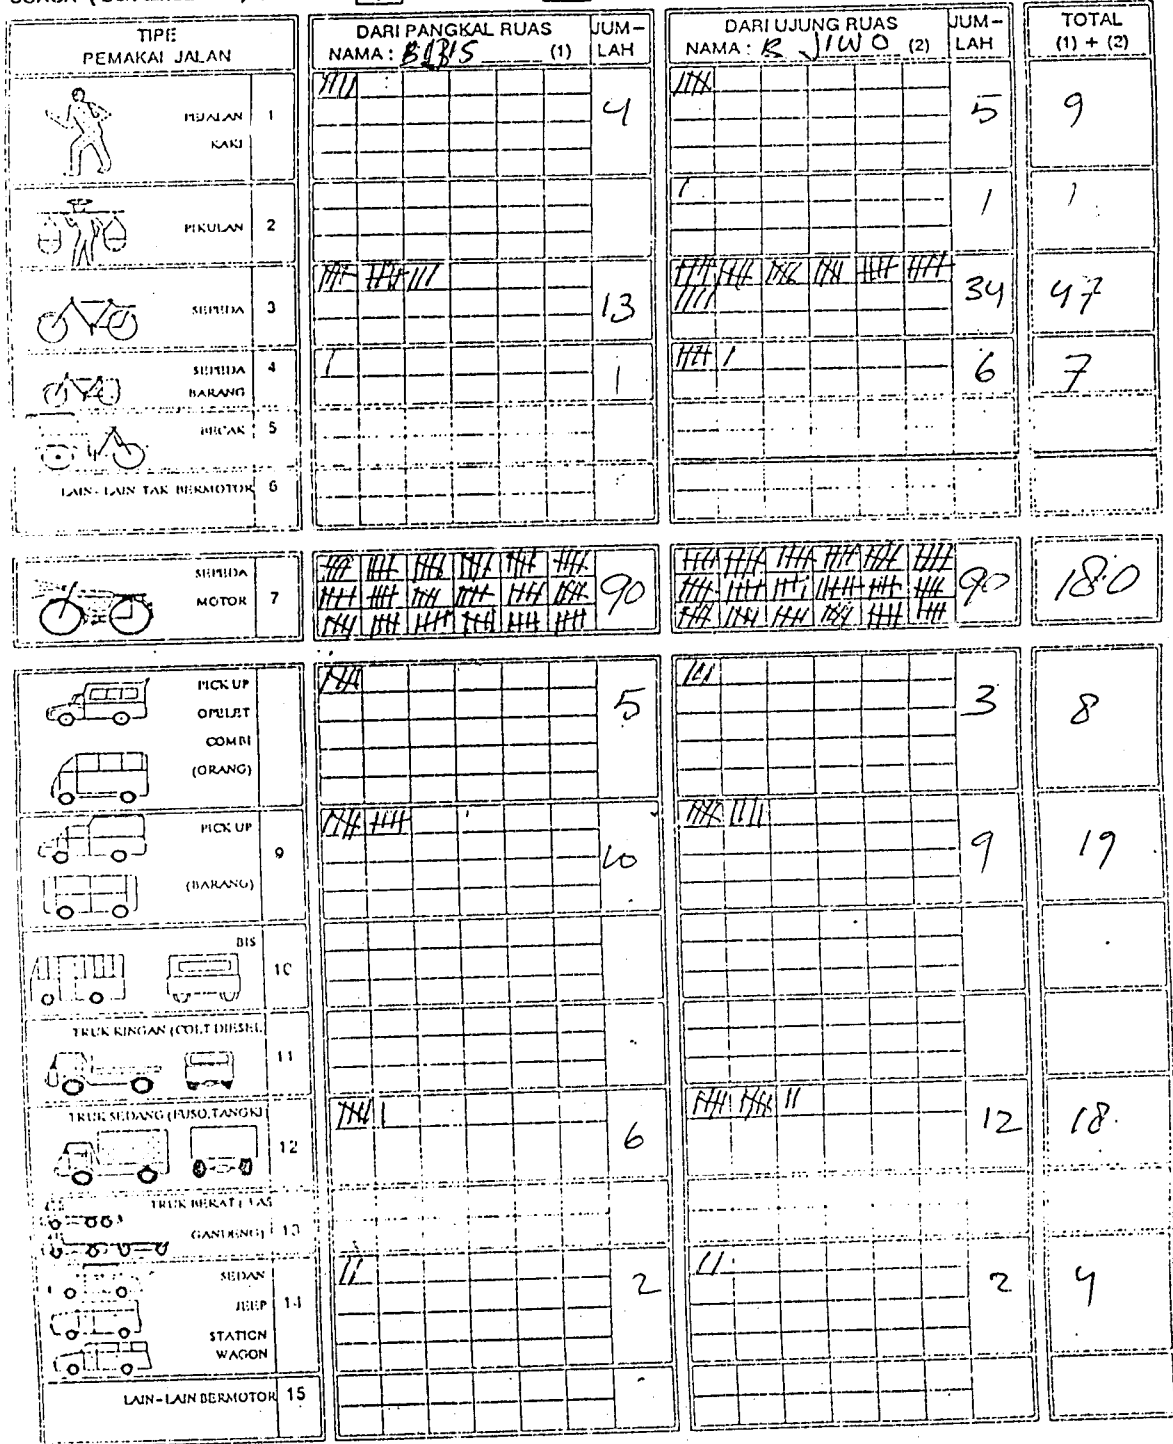 TIPE PEMAKAI JALAN | DARI PANGKAL RUAS NAMA : BIBIS (1) | JUM-LAH | DARI UJUNG RUAS NAMA : B JIWO (2) | JUM-LAH | TOTAL (1) + (2)
PEJALAN KAKI 1 4 5 9
PIKULAN 2 1 1
SEPEDA 3 13 34 47
SEPEDA BARANG 4 1 6 7
BECAK 5
LAIN-LAIN TAK BERMOTOR 6
SEPEDA MOTOR 7 90 90 180
PICK UP OPELET COMBI (ORANG) 5 3 8
PICK UP (BARANG) 9 10 9 19
BIS 10
TRUK RINGAN (COLT DIESEL) 11
TRUK SEDANG (FUSO, TANGKI) 12 6 12 18
TRUK BERAT GANDENG) 13
SEDAN JEEP STATION WAGON 14 2 2 4
LAIN-LAIN BERMOTOR 15